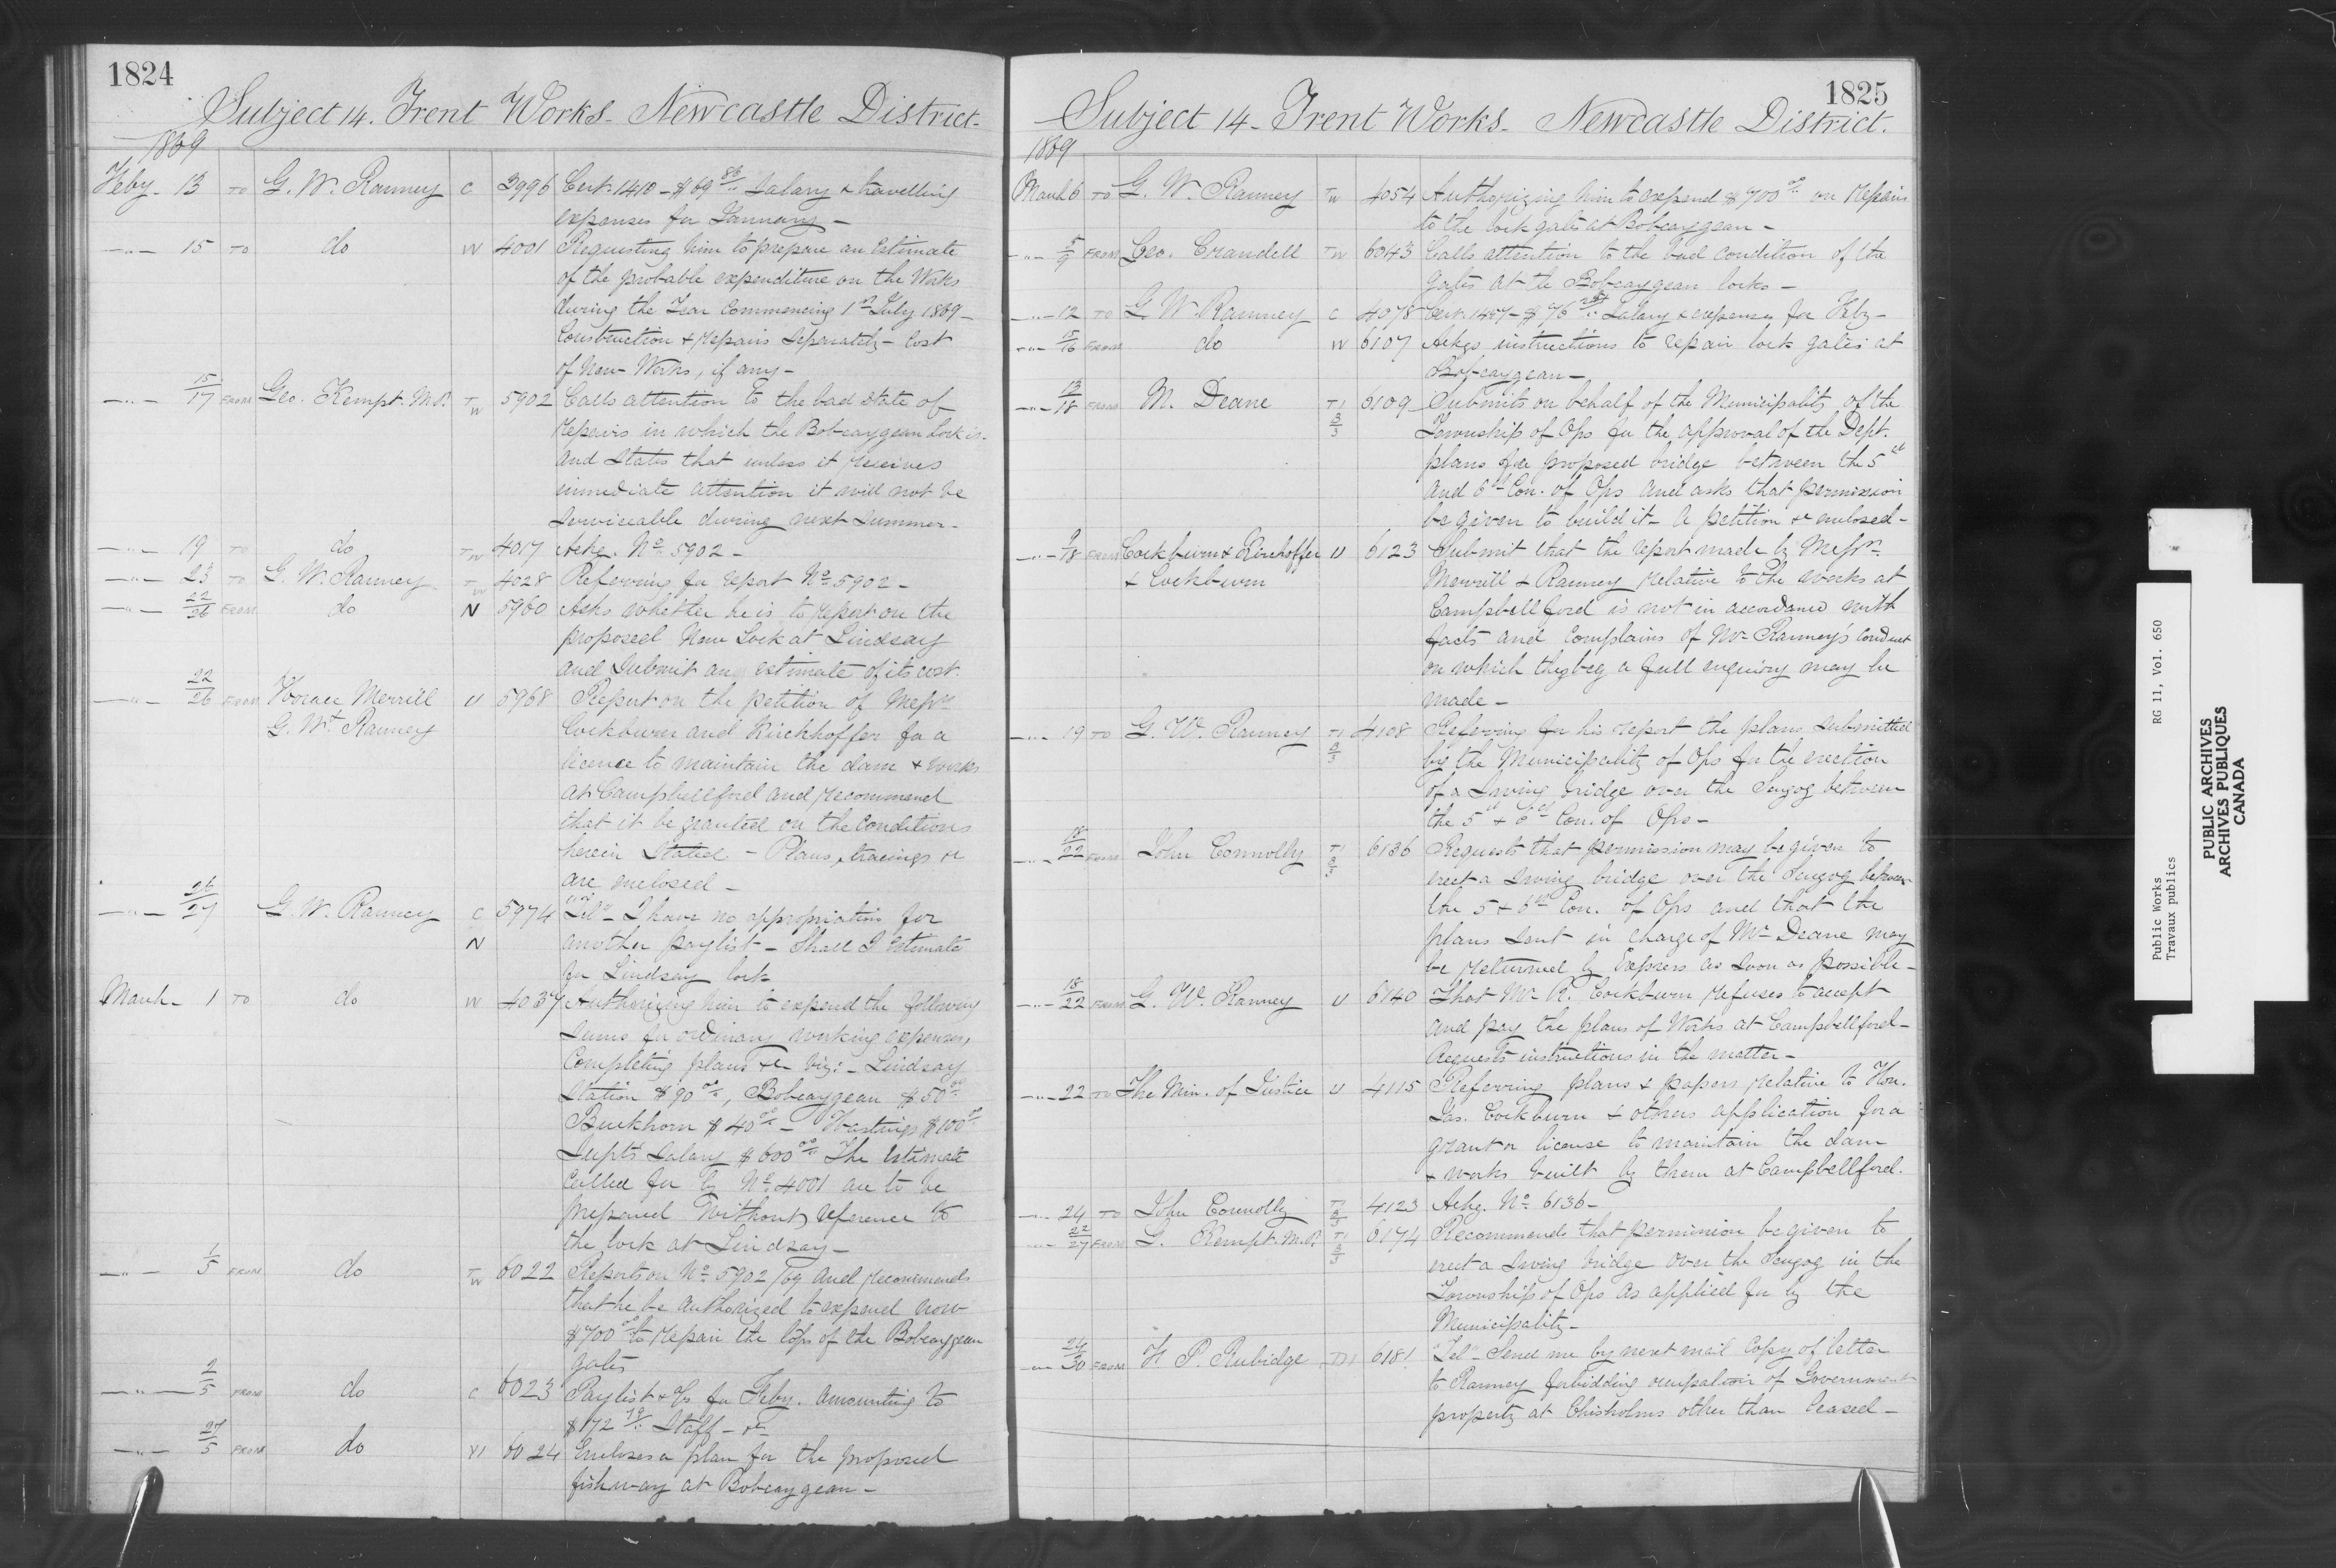 1824
Subject 14. Trent Works. Newcastle District.
1869
Feby. 13 TO G. W. Ranney C 3996 Cert. 1410 - $69 86/.. Salary & travelling
expenses for January -
-"- 15 TO do W 4001 Requesting him to prepare an Estimate
of the probable expenditure on the Works
during the Year Commencing 1st July 1869 -
Construction & Repairs Separately - Cost
of New Works, if any -
-"- 15/17 FROM Geo. Kempt. M.P. T W 5902 Calls attention to the bad state of
Repairs in which the Bobcaygean Lock is.
and States that unless it receives
immediate attention it will not be
serviceable during next summer -
-"- 19 TO do T W 4017 Ackg. No. 5902 -
-"- 23 TO G. W. Ranney T W 4028 Referring for report No. 5902 -
-"- 22/26 FROM do N 5960 Asks whether he is to report on the
proposed New Lock at Lindsay
and Submit an estimate of its cost.
-"- 22/26 FROM Horace Merrill U 5968 Report on the petition of Messrs
G. W. Ranney Cockburn and Kirchhoffer for a
licence to maintain the dam & works
at Campbellford and recommend
that it be granted on the Conditions
herein Stated - Plans, tracings &c
are enclosed -
-"- 26/27 G. W. Ranney C 5974 "Tel" - I have no appropriation for
N another paylist - Shall I Estimate
for Lindsay lock
March - 1 TO do W 4037 Authorizing him to expend the following
sums for ordinary working expenses,
Completing plans &c viz: - Lindsay
Station $90 00/.., Bobcaygean $50 00/..
Buckhorn $40 00/.. - Hastings $100 00/..
Supt's Salary $600 00/.. The Estimate
Called for by No. 4001 are to be
prepared without reference to
the lock at Lindsay -
-"- 1/5 FROM do T W 6022 Reports on No. 5902/69 and recommends
that he be authorized to expend now
$700 00/.. to repair the tops of the Bobcaygean
gates
-"- 2/5 FROM do C 6023 Paylist & Vs for Feby. amounting to
$172 79/.. Staff - &c
-"- 27/5 FROM do VI 6024 Encloses a plan for the proposed
fishway at Bobcaygean -
1825
Subject 14 - Trent Works - Newcastle District.
1869
March 6 TO G. W. Ranney T W 4054 Authorizing him to expend $700 00/.. on Repairs
to the lock gates at Bobcaygean -
-"- 5/9 FROM Geo. Crandell T W 6043 Calls attention to the bad condition of the
gates at the Bobcaygean locks -
-"- 12 TO G. W. Ranney C 4078 Cert. 1457 - $76 Salary & expenses for Feby -
-"- 15/16 FROM do W 6107 Asks instructions to repair lock gates at
Bobcaygean -
-"- 13/18 FROM M. Deane T1 3/3 6109 Submits on behalf of the Municipality of the
Township of Ops for the approval of the Dept.
plans for a proposed bridge between the 5th
and 6th Con. of Ops and asks that permission
be given to build it - A petition is enclosed -
-"- 9/18 FROM Cockburn & Kirchoffer U 6123 Submit that the report made by Messrs.
& Cockburn Merrill & Ranney relative to the works at
Campbellford is not in accordance with
facts and Complains of Mr Ranney's Conduct
on which they beg a full enquiry may be
made -
-"- 19 TO G. W. Ranney T1 3/3 4108 Referring for his report the plans submitted
by the Municipality of Ops for the erection
of a Swing bridge over the Scugog between
the 5th & 6th Con. of Ops -
-"- 18/22 FROM John Connolly T1 3/3 6136 Requests that permission may be given to
erect a Swing bridge over the Scugog between
the 5 & 6th Con. of Ops and that the
plans sent in charge of Mr Deane may
be returned by Express as soon as possible -
-"- 18/22 FROM G. W. Ranney U 6140 That Mr R. Cockburn refuses to accept
and pay the plans of Works at Campbellford -
Requests instructions in the matter -
-"- 22 TO The Min. of Justice U 4115 Referring plans & papers relative to Hon.
Jas. Cockburn & others application for a
grant or license to maintain the dam
& works built by them at Campbellford.
-"- 24 TO John Connolly T1 3/3 4123 Ackg. No. 6136 -
-"- 22/27 FROM G. Kempt. M.P. T1 3/3 6174 Recommends that permission be given to
erect a Swing bridge over the Scugog in the
Township of Ops as applied for by the
Municipality -
-"- 24/30 FROM F. P. Rubidge 6181 "Tel" - Send me by next mail Copy of letter
to Ranney forbidding occupation of Government
property at Chisholms other than leased -
Public Works RG 11, Vol. 650
Travaux publics
PUBLIC ARCHIVES
ARCHIVES PUBLIQUES
CANADA